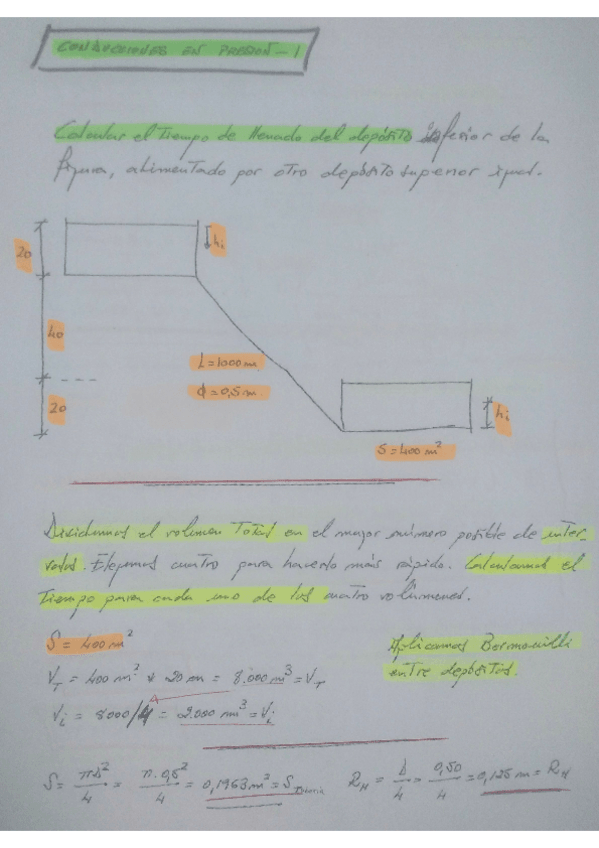 CONDUCCIONES EN PRESIÓN - 1
Calcular el tiempo de llenado del depósito inferior de la
figura, alimentado por otro depósito superior igual.
20
hi
40
L = 1000 m
ϕ = 0,5 m.
20
hi
S = 400 m²
Dividamos el volumen total en el mayor número posible de inter
valos. Elegimos cuatro para hacerlo más rápido. Calculamos el
tiempo para cada uno de los cuatro volúmenes.
S = 400 m²
Aplicamos Bernouilli
entre depósitos.
V_T = 400 m² * 20 m = 8.000 m³ = V_T
V_i = 8000/4 = 2.000 m³ = V_i
S = πD²/4 = π·0,5²/4 = 0,1963 m² = S_Tubería
R_H = D/4 = 0,50/4 = 0,125 m = R_H